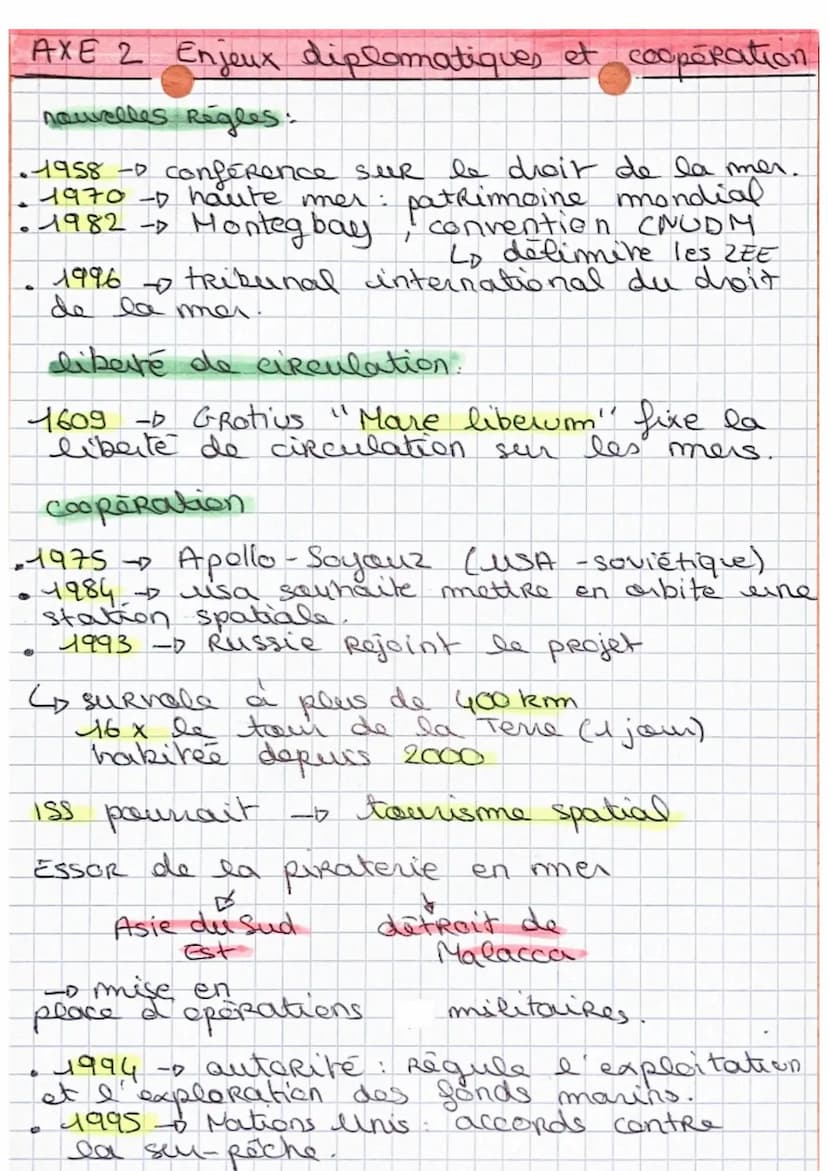 AXE 2 Enjeux diplomatiques et coopération
nouvelles Règles :
. 1958 → conférence sur le droit de la mer.
. 1970 → haute mer : patrimoine mondial
. 1982 → Montegbay , convention CNUDM
↳ délimite les ZEE
. 1996 → tribunal international du droit
de la mer.
liberté de circulation :
1609 → Grotius "Mare liberum" fixe la
liberté de circulation sur les mers.
coopération
. 1975 → Apollo - Soyouz (USA - soviétique)
. 1984 → usa souhaite mettre en orbite une
station spatiale.
. 1993 → Russie Rejoint le projet
↳ survole à plus de 400 km
16 x le tour de la Terre (1 jour)
habitée depuis 2000
ISS pourrait → tourisme spatial
ESSOR de la piraterie en mer
Asie du Sud détroit de
Est Malacca
→ mise en
place d'opérations militaires.
. 1994 → autorité : Régule l'exploitation
et l'exploration des fonds marins.
. 1995 → Nations Unis : accords contre
la sur-pêche.